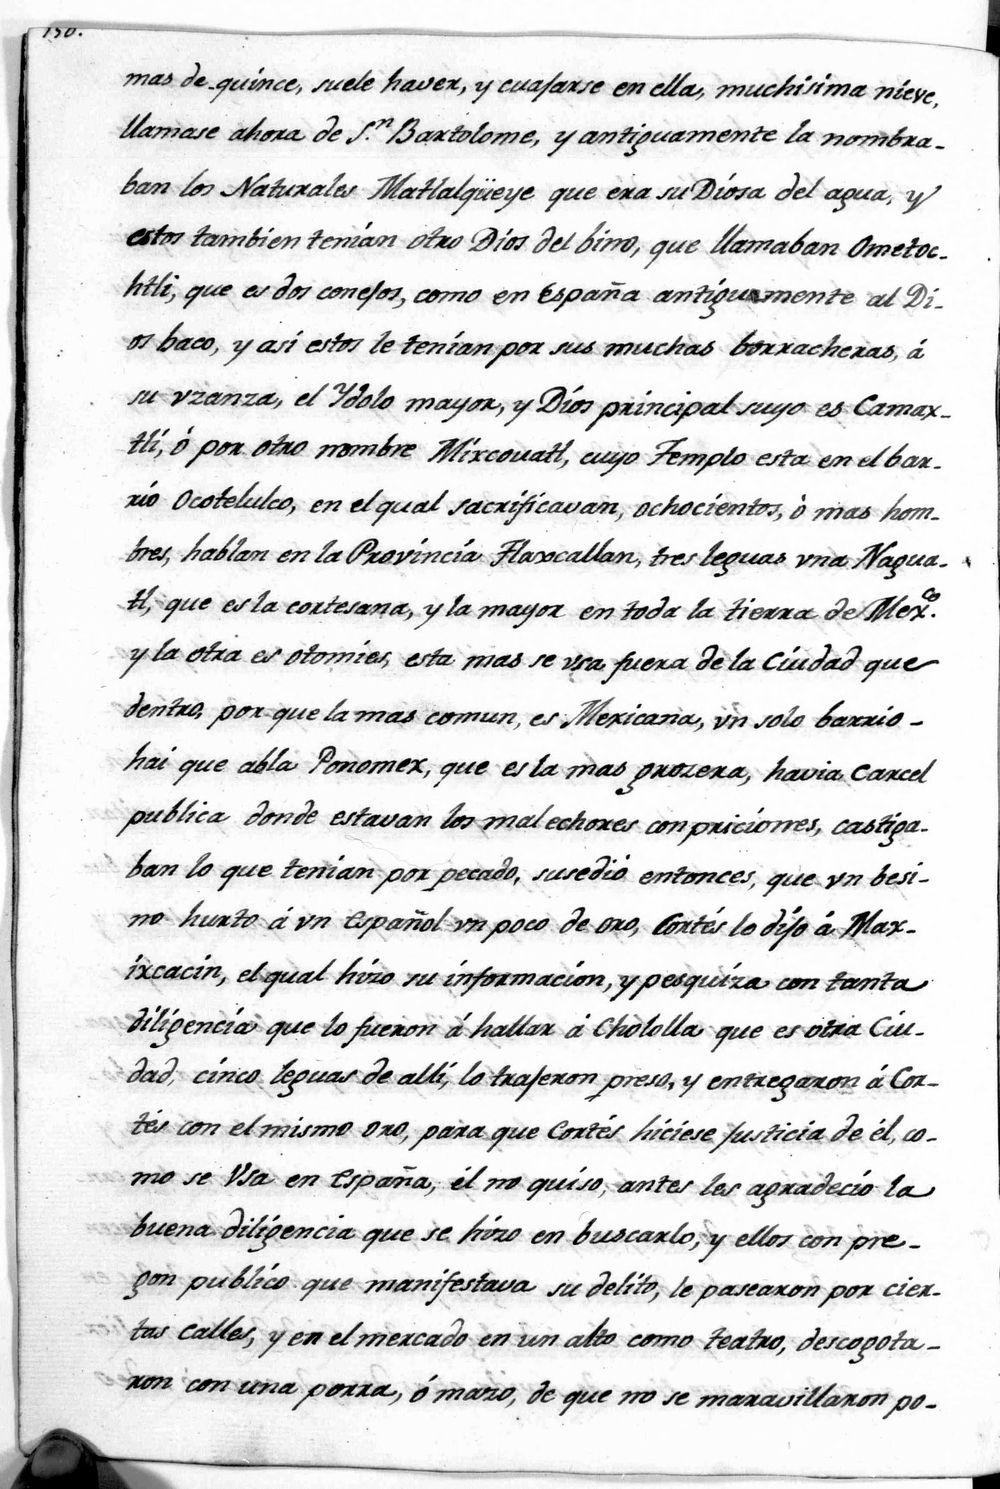 150.
mas de quince, suele haver, y cuajarse en ella, muchisima nieve,
llamase ahora de S.n Bartolome, y antiguamente la nombra-
ban los Naturales Matlalqüeye que era su Diosa del agua, y
estos tambien tenian otro Dios del bino, que llamaban Ometoc-
htli, que es dos conejos, como en España antiguamente al Di-
os baco, y asi estos le tenian por sus muchas borracheras, á
su vzanza, el Ydolo mayor, y Dios principal suyo es Camax-
tli, ó por otro nombre Mixcouatl, cuyo Templo esta en el bar-
rio Ocotelulco, en el qual sacrificavan, ochocientos, ò mas hom-
bres, hablan en la Provincia Tlaxcallan, tres leguas vna Nagua-
tl, que es la cortesana, y la mayor en toda la tierra de Mex.co
y la otra es otomies, esta mas se vsa fuera de la Ciudad que
dentro, por que la mas comun, es Mexicana, vn solo barrio -
hai que abla Ponomex, que es la mas grozera, havia Carcel
publica donde estavan los malechores con priciones, castiga-
ban lo que tenian por pecado, susedió entonces, que vn besi-
no hurto á vn Español vn poco de oro, Cortés lo dijo á Max-
ixcacin, el qual hizo su informacion, y pesquiza con tanta
diligencia que lo fueron á hallar á Chololla que es otra Ciu-
dad, cinco leguas de alli, lo trajeron preso, y entregaron á Cor-
tés con el mismo oro, para que Cortés hiciese justicia de él, co-
mo se Vsa en España, él no quiso, antes les agradeció la
buena diligencia que se hizo en buscarlo, y ellos con pre-
gon publico que manifestava su delito, le pasearon por cier-
tas calles, y en el mercado en un alto como teatro, descogota-
ron con una porra, ó mazo, de que no se maravillaron po-